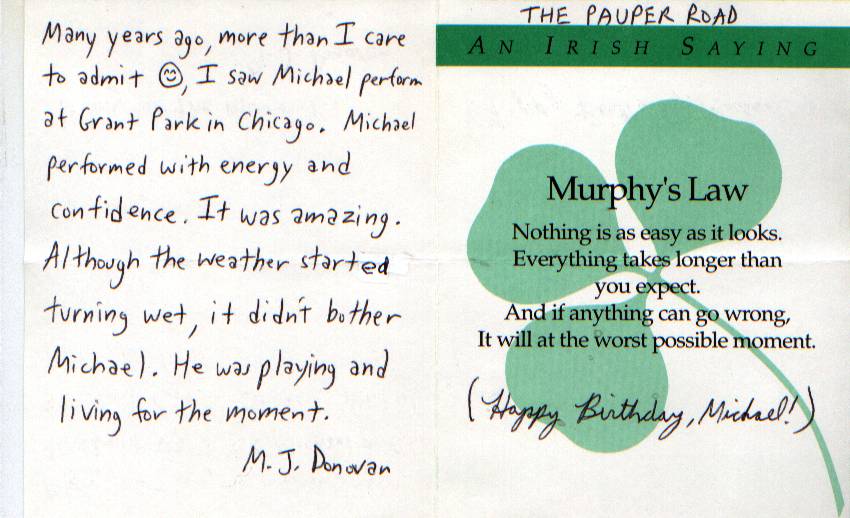 Many years ago, more than I care
to admit ☺, I saw Michael perform
at Grant Park in Chicago. Michael
performed with energy and
confidence. It was amazing.
Although the weather started
turning wet, it didn't bother
Michael. He was playing and
living for the moment.
M. J. Donovan
THE PAUPER ROAD
AN IRISH SAYING
Murphy's Law
Nothing is as easy as it looks.
Everything takes longer than
you expect.
And if anything can go wrong,
It will at the worst possible moment.
(Happy Birthday, Michael!)